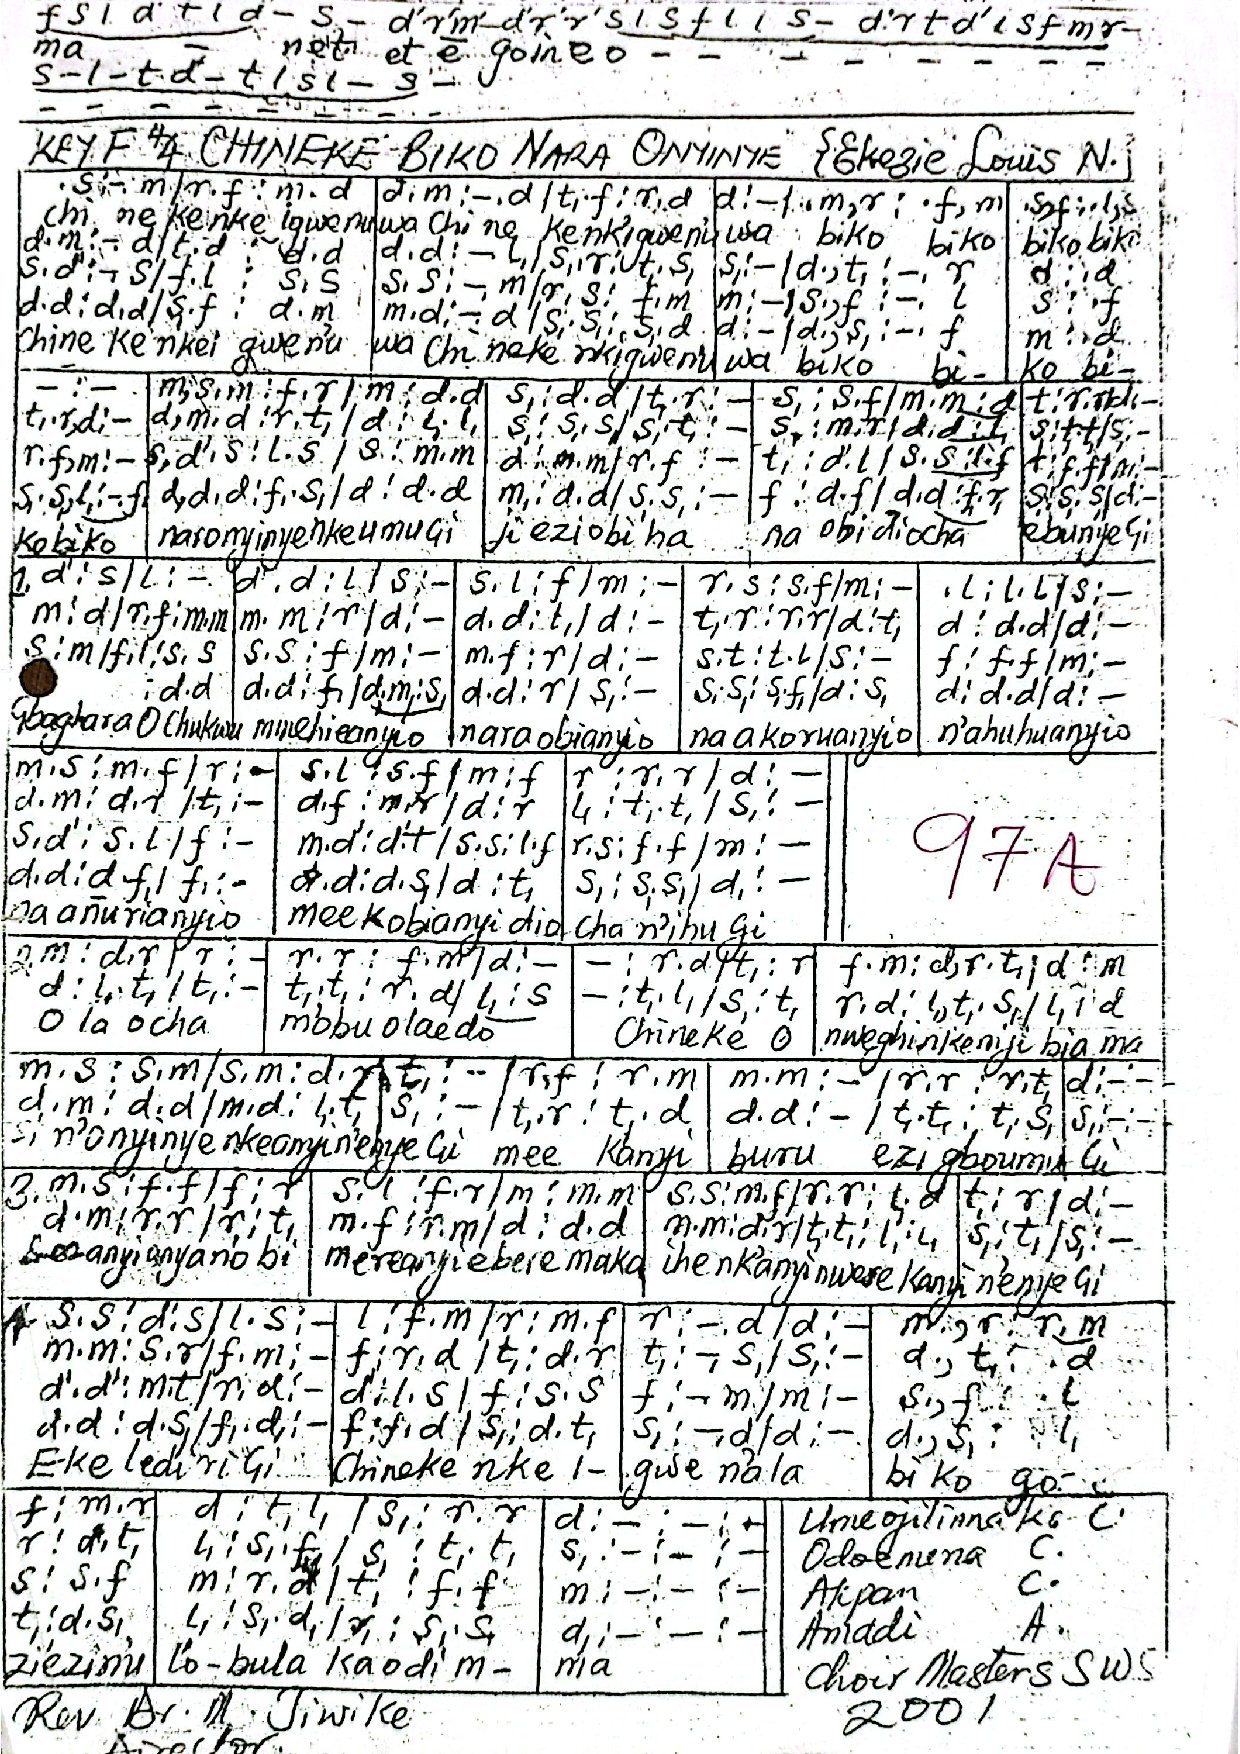 f s l d' t l d' - s - d' r' m' - d' r' r' s l s f l l s - d' r' t d' l s f m r -
ma - net et e goin e o - - - - - - - - -
s - l - t - d' - t l s l - s -
KEY F 4/4 CHINEKE BIKO NARA ONYINYE {Ekezie Louis N.}
.s :- m/r.f : m.d | d.m :-.d/t,.f : r.d | d :-/.m,r : .f,m | .s,f : .l,s
chi ne ke nke igwenu wa Chi ne kenkigwenu wa biko biko biko biko
d.m :- d/t.d : d.d | d.d :- l,/s,.r : t,.s, | s, :-/d.,t, :-. r | d : .d
s.d' :-, s/f.l : s.s | s.s :-, m/r.s : f.m | m :-/s.,f :-. l | s : .f
d.d : d.d/s,.f : d.m | m.d :-.d/s,.s, : s,.d | d :-/d.,s, :-. f | m : .d
chine ke nkei gwenu wa Chi neke nkigwenu wa biko bi- ko bi-
- : - | m,s.m : f.r/m : d.d | s, : d.d/t,.r : - | s, : s.f/m.m : d | t : r.r/d :-
t,.r,d :- | d,m.d : r.t,/d : l,.l, | s, : s,.s,/s,.t, : - | s, : m.r/d.d : t, | s : t.t/s, :-
r.f,m :- | s,d'.s : l.s/s : m.m | d : m.m/r.f : - | t, : d'.l/s.s : l.f | t : f.f/m :-
s,.s,l, :-.f | d,d.d : f,.s,/d : d.d | m, : d.d/s,.s, :- | f : d.f/d.d : f.r | s : s.s/d :-
kobiko naronyinyenkeumuGi ji eziobi ha na obi diocha ebunyeGi
1. d' : s/l : - | d'.d' : l/s :- | s.l : f/m :- | r.s : s.f/m :- | .l : l.l/s :-
m : d/r.f : m.m | m.m : r/d :- | d.d : t,/d :- | t,.r : r.r/d : t, | d : d.d/d :-
s : m/f.l : s.s | s.s : f/m :- | m.f : r/d :- | s.t : t.l/s :- | f : f.f/m :-
: d.d | d.d : f,/d.m, : s, | d.d : r/s, :- | s,.s, : s,.f,/d : s, | d : d.d/d :-
Gbaghara O Chukwu mmehieanyio naraobianyio na akoruanyio n'ahuhuanyio
m.s : m.f/r :- | s.l : s.f/m : f | r : r.r/d :-
d.m : d.r/t, :- | d.f : m.r/d : r | l, : t,.t,/s, :-
s.d' : s.l/f :- | m.d' : d'.t/s.s : l.f | r.s : f.f/m :-
d.d : d.f,/f, :- | d.d : d.s,/d : t, | s, : s,.s,/d, :-
na añurianyio meekobianyi dio cha n'ihu Gi
97A
2. m : d.r/r :- | r.r : f.m/d :- | - : r.d/t, : r | f.m : d,r.t,/d : m
d : l,.t,/t, :- | t,.t, : r.d/l, : s | - : t,.l,/s, : t, | r.d : l,,t,.s,/l, : d
O la ocha mobu olaedo Chineke O nweghinkeniji bia ma
m.s : s.m/s.m : d.r | t, : -/r.f : r.m | m.m : -/r.r : r.t, | d :-:-
d.m : d.d/m.d : l,.t, | s, :-/t,.r : t,.d | d.d :-/t,.t, : t,.s, | s, :-:-
si n'onyinye nkeanyin'enyeGi mee kanyi buru ezi gboumu Gi
3. m.s : f.f/f : r | s.l : f.r/m : m.m | s.s : m.f/r.r : l,.d | t, : r/d :-
d.m : r.r/r : t, | m.f : r.m/d : d.d | m.m : d.r/t,.t, : l, : l, | s, : t,/s, :-
anyianyano bi mereanyiebere maka ihe nk'anyinwere kanyi n'enyeGi
4. s.s : d' : s/l.s :- | l : f.m/r : m.f | r :-.d/d :- | m.,r : r.m
m.m : s.r/f.m :- | f : r.d/t, : d.r | t, :-,s,/s, :- | d., t, : .d
d'.d' : m.t/r.d :- | d' : l.s/f : s.s | f :- m/m :- | s., f : .l
d.d : d.s,/f,.d, :- | f : f.d/s, : d.t, | s, :-,d/d :- | d., s, : .l,
E-ke lediri Gi Chineke nke i- gwe n'ala bi ko go-
f : m.r | d : t,.l,/s, : r.r | d : - : - : -
r : d.t, | l, : s,.f,/s, : t,.t, | s, : - : - : -
s : s.f | m : r.d/t, : f.f | m : - : - : -
t, : d.s, | l, : s,.d,/r, : s,.s, | d, : - : - : -
ziezinu lo-bula kaodi m- ma
Umeojilinna Ko C.
Odoemena C.
Akpan C.
Amadi A.
Choir Masters SWS
2001
Rev. Dr. M. Jiwike
Director.